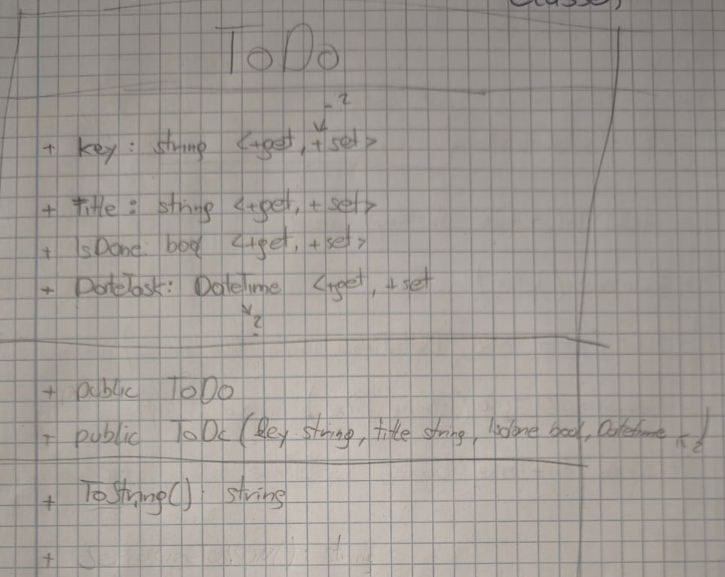 Classe,
ToDo
- ?
+ key: string <+get, + set>
+ Title: string <+get, + set>
+ IsDone: bool <+get, + set>
+ DateTask: DateTime <+get, + set
?
+ public ToDo
+ public ToDo (key string, title string, Isdone bool, Datetime
+ ToString(): string
+